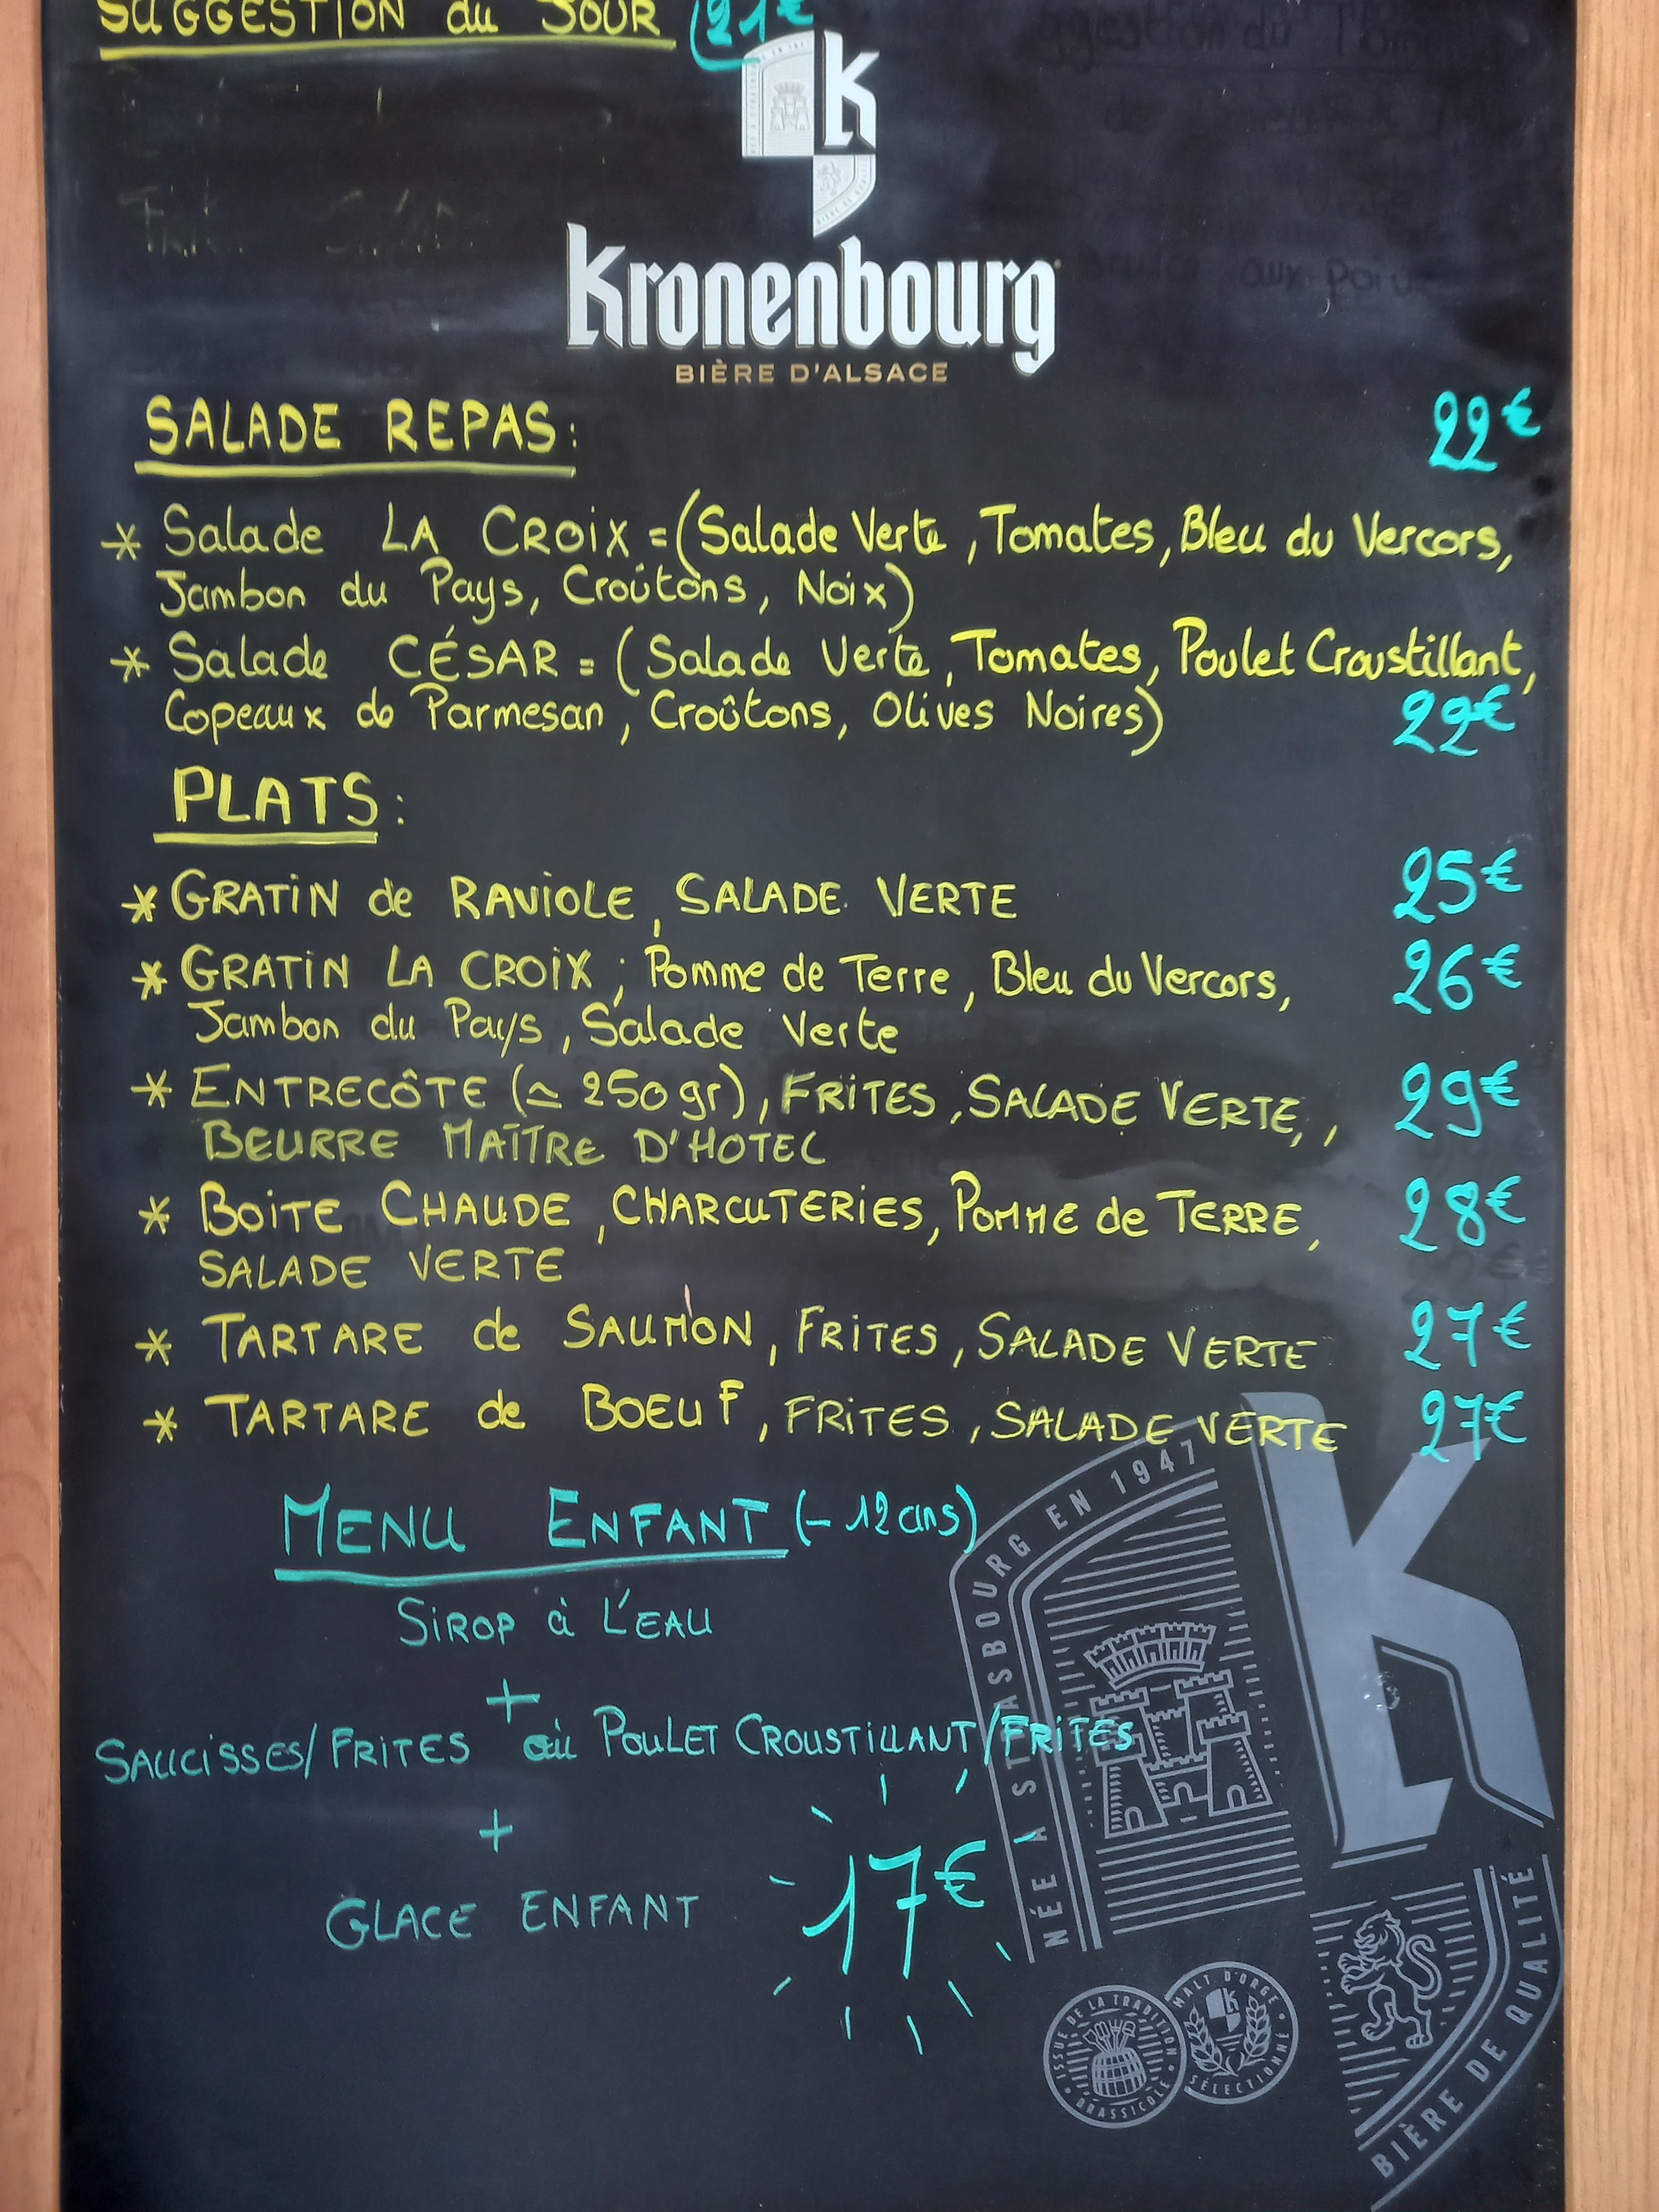 SUGGESTION du JOUR (21€
K
Kronenbourg
BIÈRE D'ALSACE
SALADE REPAS: 22€
* Salade LA CROIX = (Salade Verte, Tomates, Bleu du Vercors,
Jambon du Pays, Croûtons, Noix)
* Salade CÉSAR = (Salade Verte, Tomates, Poulet Croustillant,
Copeaux de Parmesan, Croûtons, Olives Noires) 22€
PLATS:
* GRATIN de RAVIOLE, SALADE VERTE 25€
* GRATIN LA CROIX; Pomme de Terre, Bleu du Vercors, 26€
Jambon du Pays, Salade Verte
* ENTRECÔTE (≃ 250gr), FRITES, SALADE VERTE, , 29€
BEURRE MAÎTRE D'HOTEL
* BOITE CHAUDE, CHARCUTERIES, POMME de TERRE, 28€
SALADE VERTE
* TARTARE de SAUMON, FRITES, SALADE VERTE 27€
* TARTARE de BOEUF, FRITES, SALADE VERTE 27€
MENU ENFANT (- 12 ans)
SIROP à L'EAU
+
SAUCISSES/FRITES où POULET CROUSTILLANT/FRITES
+
GLACE ENFANT 17€
NÉE A STRASBOURG EN 1947
K
BIÈRE DE QUALITÉ
ISSUE DE LA TRADITION BRASSICOLE
MALT D'ORGE SÉLECTIONNÉ